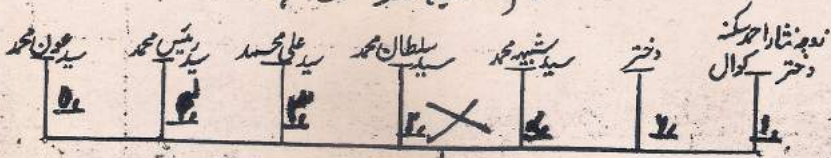 زوجہ نثار احمد سکنہ
دختر کوال
دختر
سید شبیہ محمد
سید سلطان محمد
سید علی محمد
سید رئیس محمد
سید عون محمد